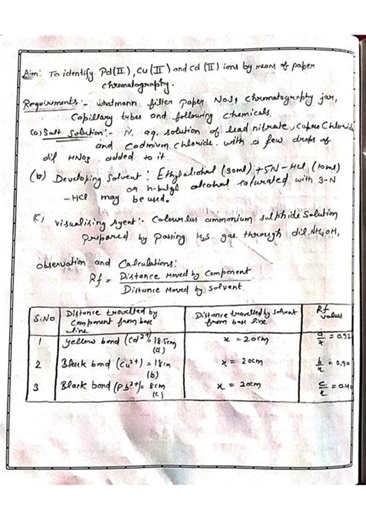 Aim: To identify Pd(II), Cu(II) and Cd(II) ions by means of paper
chromatography.
Requirements:- Whatmann filter paper No 1, Chromatography jar,
Capillary tubes and following chemicals.
(a) Salt Solution:- aq. solution of lead nitrate, Cupric Chloride
and Cadmium Chloride with a few drops of
dil HNO3 added to it
(b) Developing Solvent: Ethyl alcohol (90ml) + 5N-HCl (10ml)
or n-butyl alcohol saturated with 3-N
-HCl may be used.
(c) Visualising Agent:- Colourless ammonium sulphide Solution
prepared by passing H2S gas through dil. NH4OH,
observation and Calculations:
Rf = Distance Moved by Component
Distance Moved by solvent
S.No Distance travelled by Component from base line Distance travelled by solvent from base line Rf values
1 Yellow bond (Cd2+) 18.5cm (a) x = 20cm a/x = 0.92
2 Black bond (Cu2+) = 18cm (b) x = 20cm b/x = 0.90
3 Black bond (Pb2+) = 8cm (c) x = 20cm c/x = 0.40